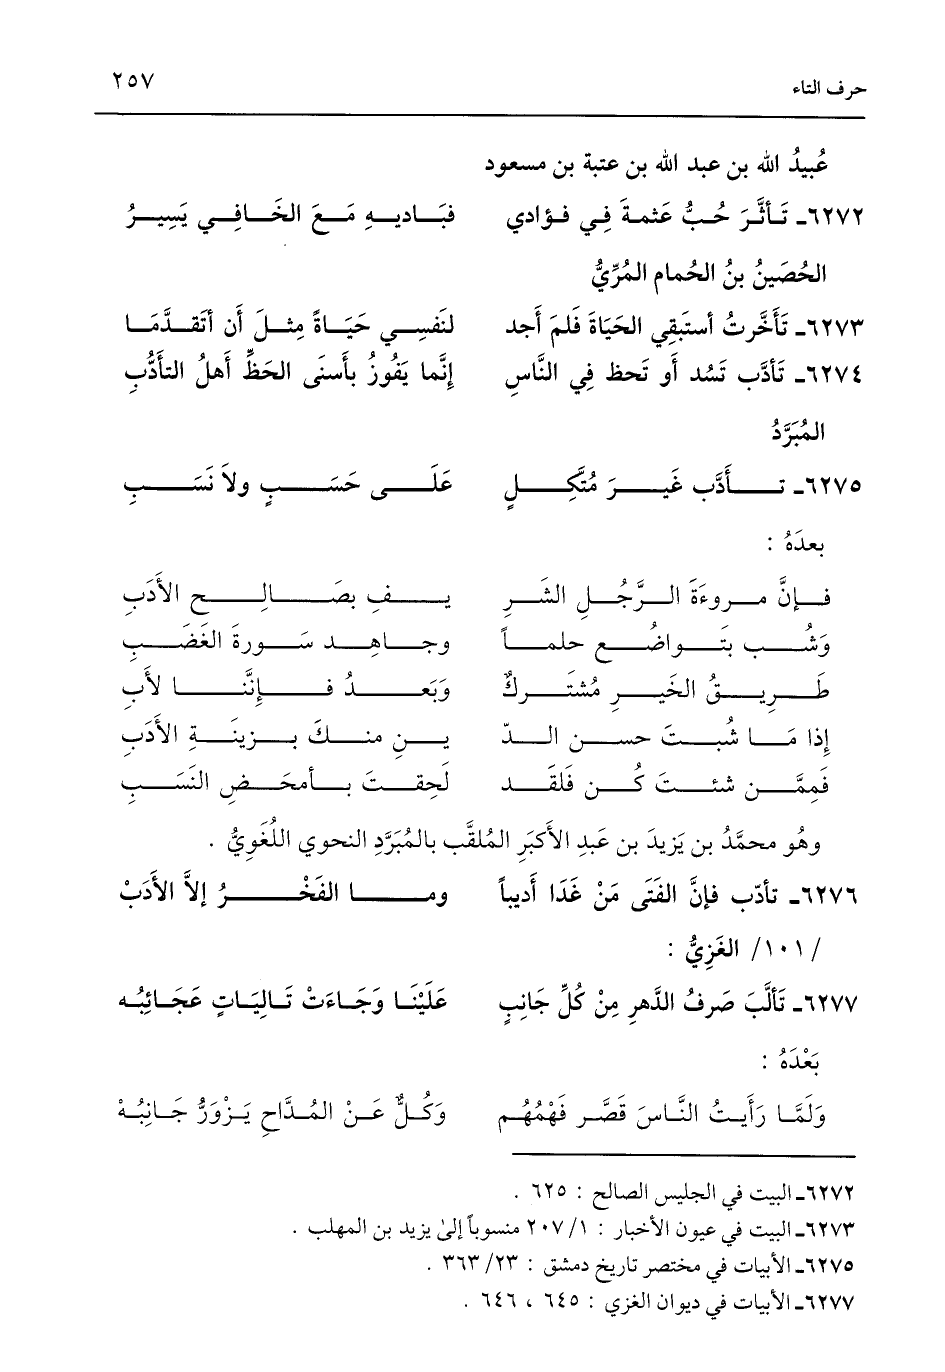 حرف التاء ٢٥٧
عُبيدُ الله بن عبد الله بن عتبة بن مسعود
٦٢٧٢ـ تَأثَّرَ حُبُّ عَثمةَ فِي فؤادي فبَاديهِ مَعَ الخَافِي يَسِيرُ
الحُصَينُ بنُ الحُمام المُرِّيُّ
٦٢٧٣ـ تَأَخَّرتُ أستَبقِي الحَيَاةَ فَلم أَجد لنَفسِي حَيَاةً مِثلَ أَن أتَقدَّمَا
٦٢٧٤ـ تَأدَّب تَسُد أَو تَحظ فِي النَّاسِ إنَّما يَفُوزُ بأَسنَى الحَظِّ أَهلُ التأدُّبِ
المُبَرَّدُ
٦٢٧٥ـ تأَدَّب غَيرَ مُتَّكِلٍ عَلَى حَسَبٍ ولاَ نَسَبِ
بعدَهُ :
فإنَّ مروءَةَ الرَّجُلِ الشَرِ يفِ بصَالِحِ الأَدَبِ
وَشُب بتَواضُعٍ حلماً وجاهِد سَورةَ الغَضَبِ
طَرِيقُ الخَيرِ مُشتَركٌ وَبَعدُ فإنَّنَا لأَبِ
إذا مَا شُبتَ حسن الدّ ينِ منكَ بزينَةِ الأَدَبِ
فَمِمَّن شئتَ كُن فَلَقَد لَحِقتَ بأمحَضِ النَسَبِ
وهُو محمَّدُ بن يَزيدَ بن عَبدِ الأَكبَرِ المُلقَّب بالمُبَرَّدِ النحوي اللُغَوِيُّ .
٦٢٧٦ـ تأدّب فإنَّ الفَتَى مَنْ غَدَا أَديباً وما الفَخْرُ إلاَّ الأَدَبْ
/ ١٠١/ الغَزِيُّ :
٦٢٧٧ـ تَألَّبَ صَرفُ الدَّهرِ مِنْ كُلِّ جَانِبٍ عَلَيْنَا وَجَاءَتْ تَالِيَاتٍ عَجَائِبُه
بَعْدَهُ :
وَلَمَّا رَأَيتُ النَّاسَ قَصَّر فَهْمُهُم وَكُلٌّ عَنْ المُدَّاحِ يَزْوَرُّ جَانِبُهْ
٦٢٧٢ـ البيت في الجليس الصالح : ٦٢٥ .
٦٢٧٣ـ البيت في عيون الأخبار : ١/ ٢٠٧ منسوباً إلىٰ يزيد بن المهلب .
٦٢٧٥ـ الأبيات في مختصر تاريخ دمشق : ٢٣/ ٣٦٣ .
٦٢٧٧ـ الأبيات في ديوان الغزي : ٦٤٥ ، ٦٤٦ .